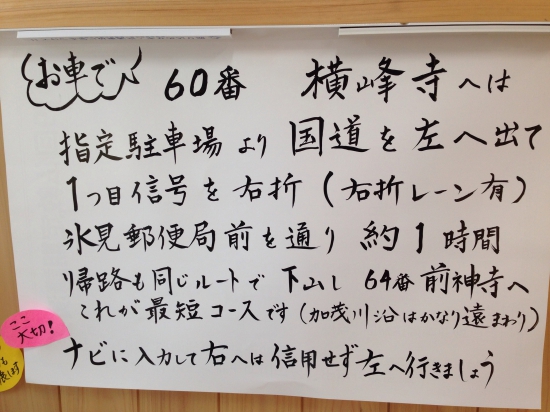 お車で
60番 横峰寺へは
指定駐車場より国道を左へ出て
1つ目信号を右折(右折レーン有)
氷見郵便局前を通り 約1時間
帰路も同じルートで下山し 64番前神寺へ
これが最短コースです(加茂川沿はかなり遠まわり)
ここ
大切!
ナビに入力して右へは信用せず左へ行きましょう